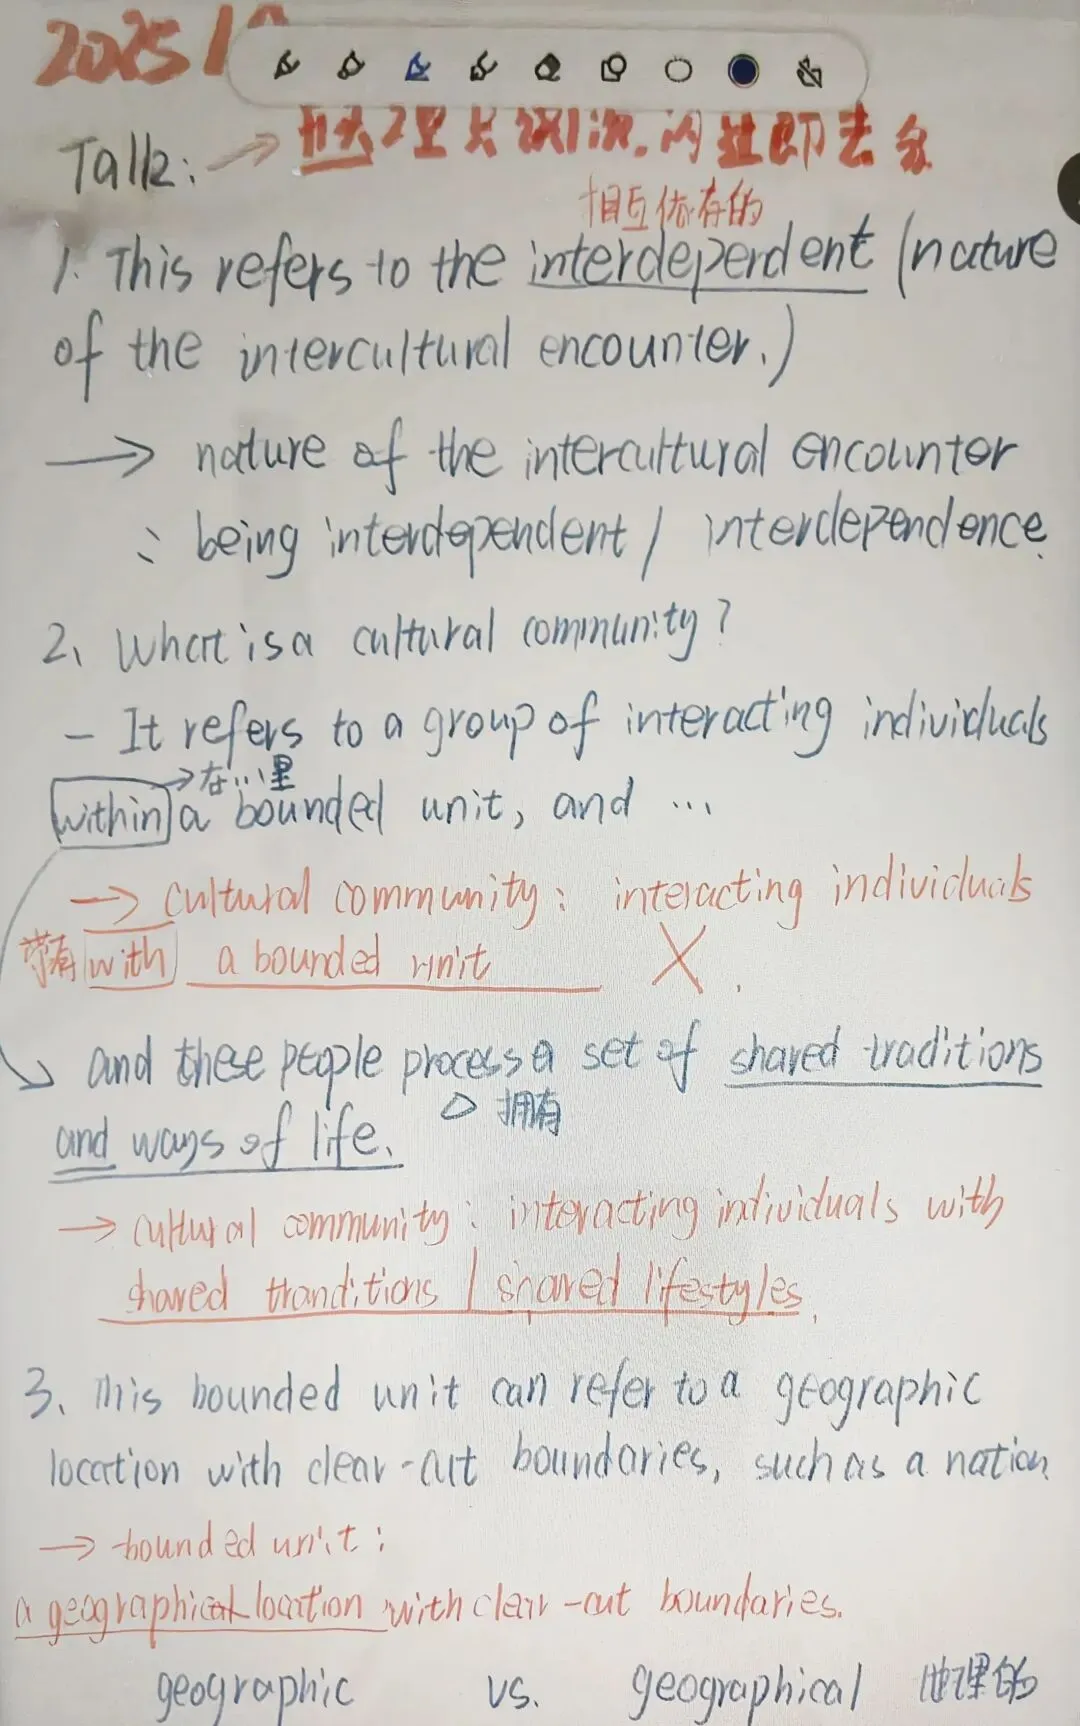 2025/
Talk: →
相互依存的
1. This refers to the interdependent (nature
of the intercultural encounter.)
→ nature of the intercultural encounter
: being interdependent / interdependence.
2、What is a cultural community?
- It refers to a group of interacting individuals
→在...里
within a bounded unit, and ...
→ cultural community: interacting individuals
带有 with a bounded unit X.
and these people process a set of shared traditions
拥有
and ways of life.
→ cultural community: interacting individuals with
shared tranditions / shared lifestyles.
3、This bounded unit can refer to a geographic
location with clear-cut boundaries, such as a nation.
→ bounded unit:
a geographical location with clear-cut boundaries.
geographic vs. geographical 地理的